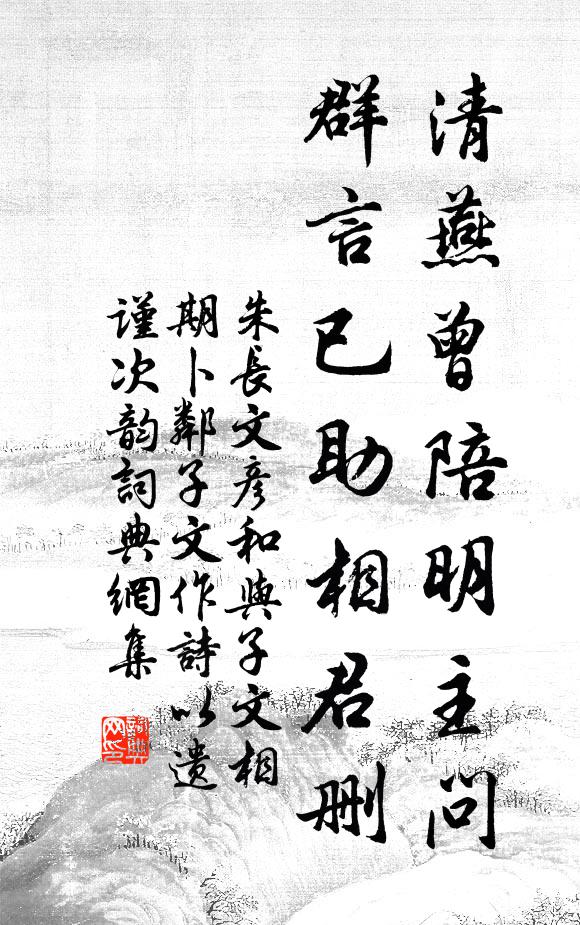 清燕曾陪明主問
群言已助相君刪
朱長文彥和與子文相
期卜鄰子文作詩以遺
謹次韵詞典網集